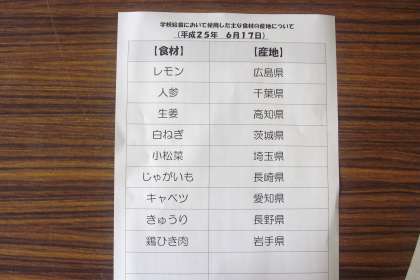 学校給食において使用した主な食材の産地について
（平成２５年　６月１７日）
【食材】　【産地】
レモン　広島県
人参　千葉県
生姜　高知県
白ねぎ　茨城県
小松菜　埼玉県
じゃがいも　長崎県
キャベツ　愛知県
きゅうり　長野県
鶏ひき肉　岩手県